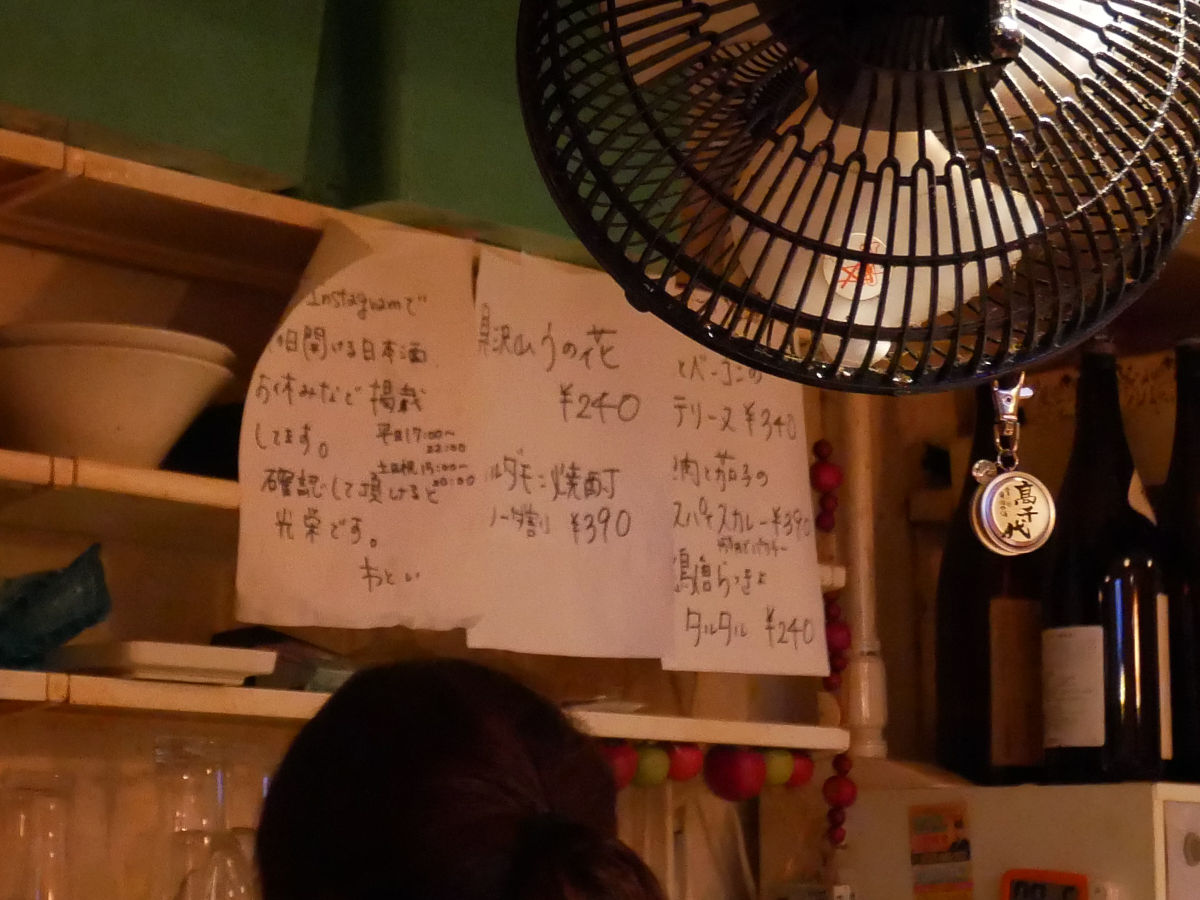 Instagramで
毎日開ける日本酒
お休みなど掲載
してます。
平日17:00〜
22:00
土日祝15:00〜
20:00
確認して頂けると
光栄です。
おとい
具沢山うの花
¥240
カルダモン焼酎
ソーダ割 ¥390
とベーコンの
テリーヌ ¥340
肉と茄子の
スパイスカレー ¥390
らっきょ
タルタル ¥240
高千代